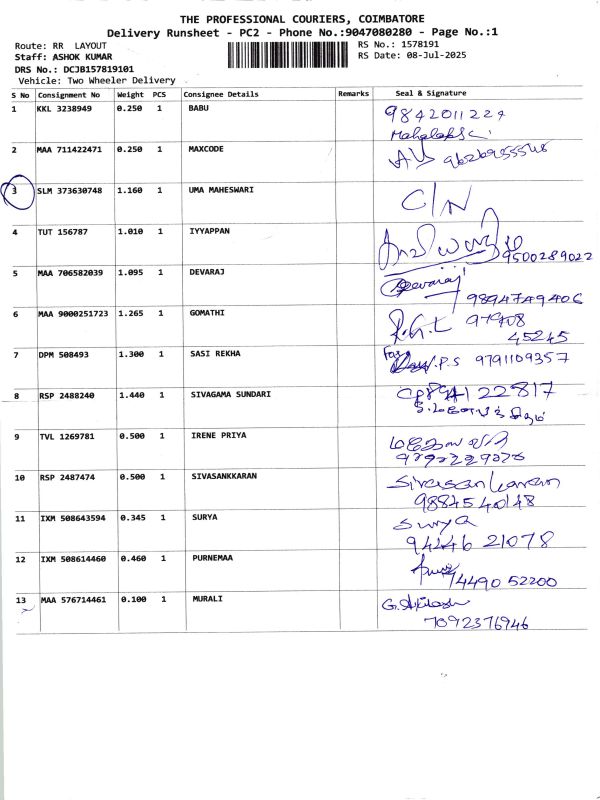 THE PROFESSIONAL COURIERS, COIMBATORE
Delivery Runsheet - PC2 - Phone No.:9047080280 - Page No.:1
Route: RR LAYOUT
RS No.: 1578191
Staff: ASHOK KUMAR
RS Date: 08-Jul-2025
DRS No.: DCJB157819101
Vehicle: Two Wheeler Delivery
S No Consignment No Weight PCS Consignee Details Remarks Seal & Signature
1 KKL 3238949 0.250 1 BABU 9842011224
2 MAA 711422471 0.250 1 MAXCODE
3 SLM 373630748 1.160 1 UMA MAHESWARI C/N
4 TUT 156787 1.010 1 IYYAPPAN
9500289022
5 MAA 706582039 1.095 1 DEVARAJ Devaraj
9894749406
6 MAA 9000251723 1.265 1 GOMATHI 97908
45245
7 DPM 508493 1.300 1 SASI REKHA P.S 9791109357
8 RSP 2488240 1.440 1 SIVAGAMA SUNDARI 22817
9 TVL 1269781 0.500 1 IRENE PRIYA
10 RSP 2487474 0.500 1 SIVASANKKARAN Sivasankaran
9884540148
11 IXM 508643594 0.345 1 SURYA Surya
94446 21078
12 IXM 508614460 0.460 1 PURNEMAA
74490 52200
13 MAA 576714461 0.100 1 MURALI
7092376946